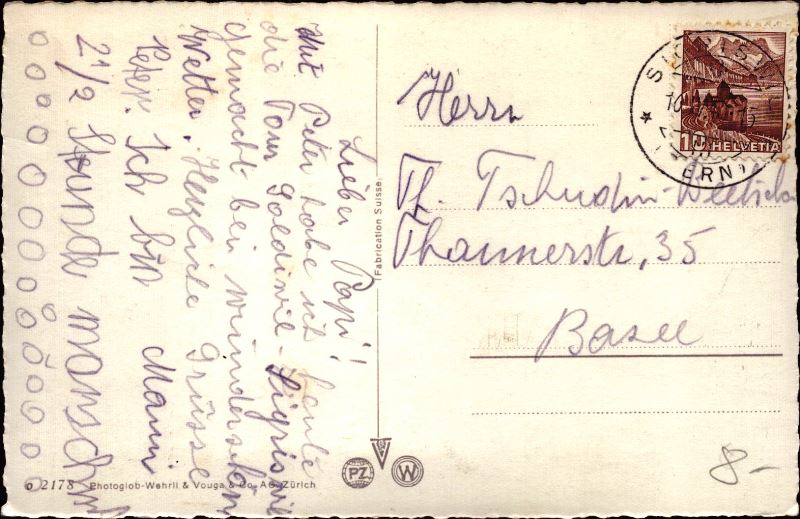 Lieber Papi!
Mit Peter habe ich heute
die Tour Goldiwil - Sigriswil
gemacht bei wunderschön
Wetter. Herzliche Grüsse
Peter. Ich bin Mami
2 1/2 Stunde marschiert
Herrn
Th. Tschudin-
Thannerstr, 35
Basel
Fabrication Suisse
HELVETIA
10
(BERN)
PZ
W
o 2178 Photoglob-Wehrli & Vouga & Co. AG. Zürich
8.-